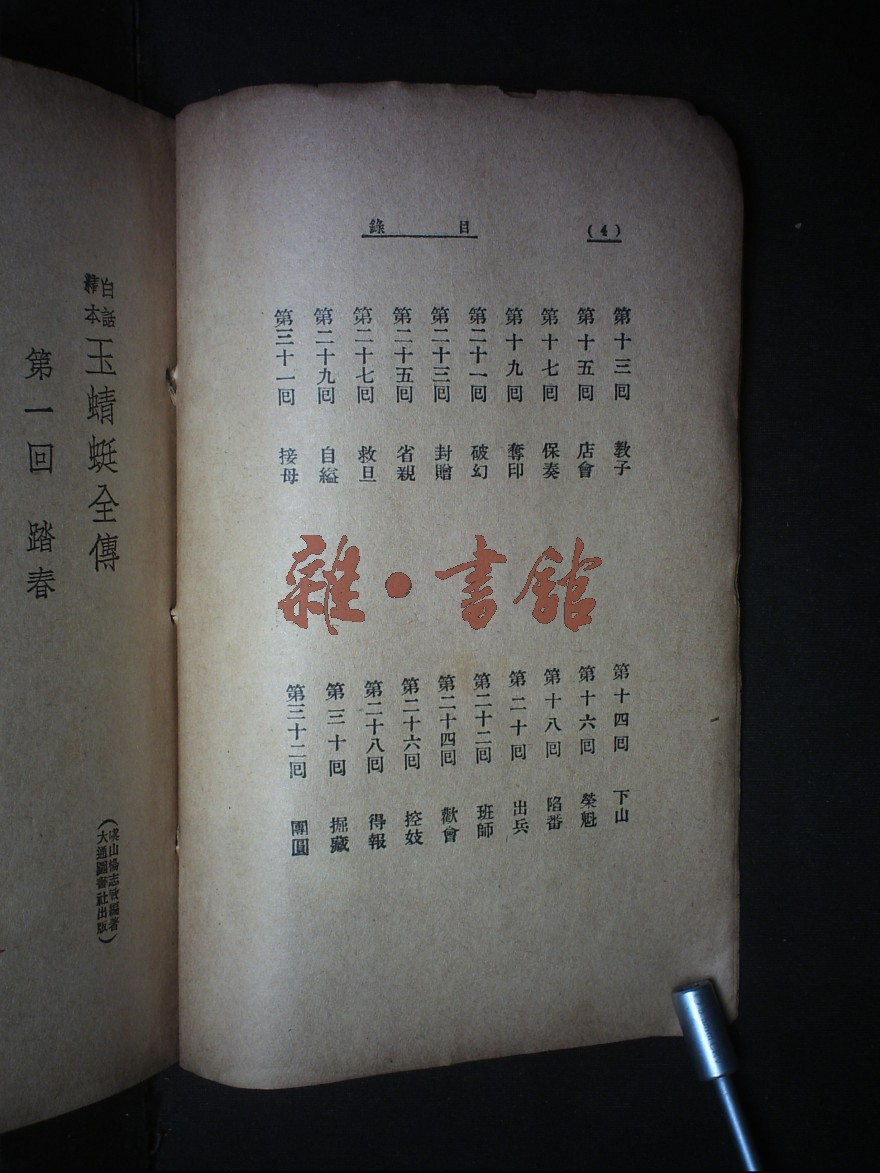 (4)
目錄
第十三回 教子
第十四回 下山
第十五回 店會
第十六回 榮魁
第十七回 保奏
第十八回 陷番
第十九回 奪印
第二十回 出兵
第二十一回 破幻
第二十二回 班師
第二十三回 封贈
第二十四回 歡會
第二十五回 省親
第二十六回 控妓
第二十七回 救旦
第二十八回 得報
第二十九回 自縊
第三十回 掘藏
第三十一回 接母
第三十二回 團圓
雜·書館
白話
繹本
玉蜻蜓全傳
(虞山楊志敏編著
大通圖書社出版)
第一回 踏春